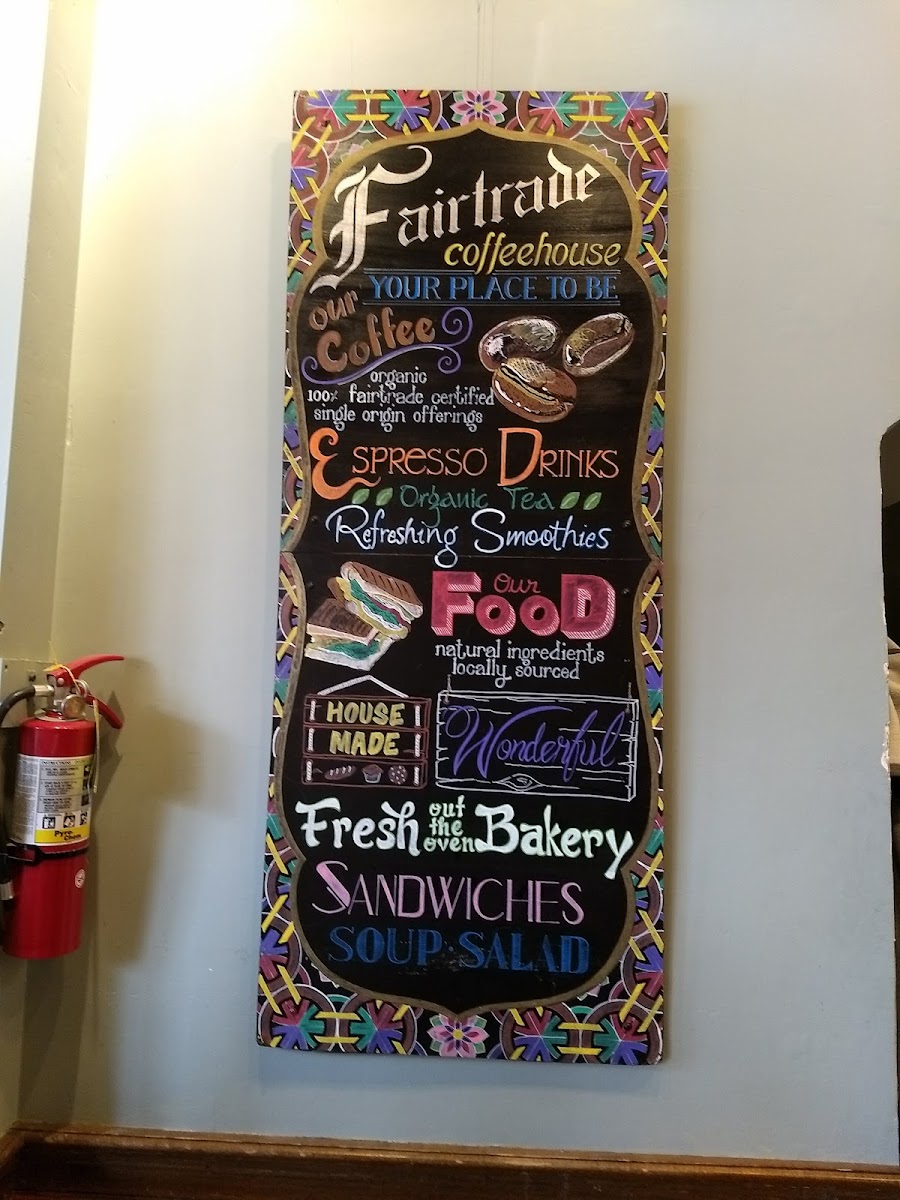 Fairtrade
coffeehouse
YOUR PLACE TO BE
our
Coffee
organic
100% fairtrade certified
single origin offerings
ESPRESSO DRINKS
Organic Tea
Refreshing Smoothies
Our
FOOD
natural ingredients
locally sourced
HOUSE
MADE
Wonderful
Fresh out the oven Bakery
SANDWICHES
SOUP·SALAD
Pyro-
Chem